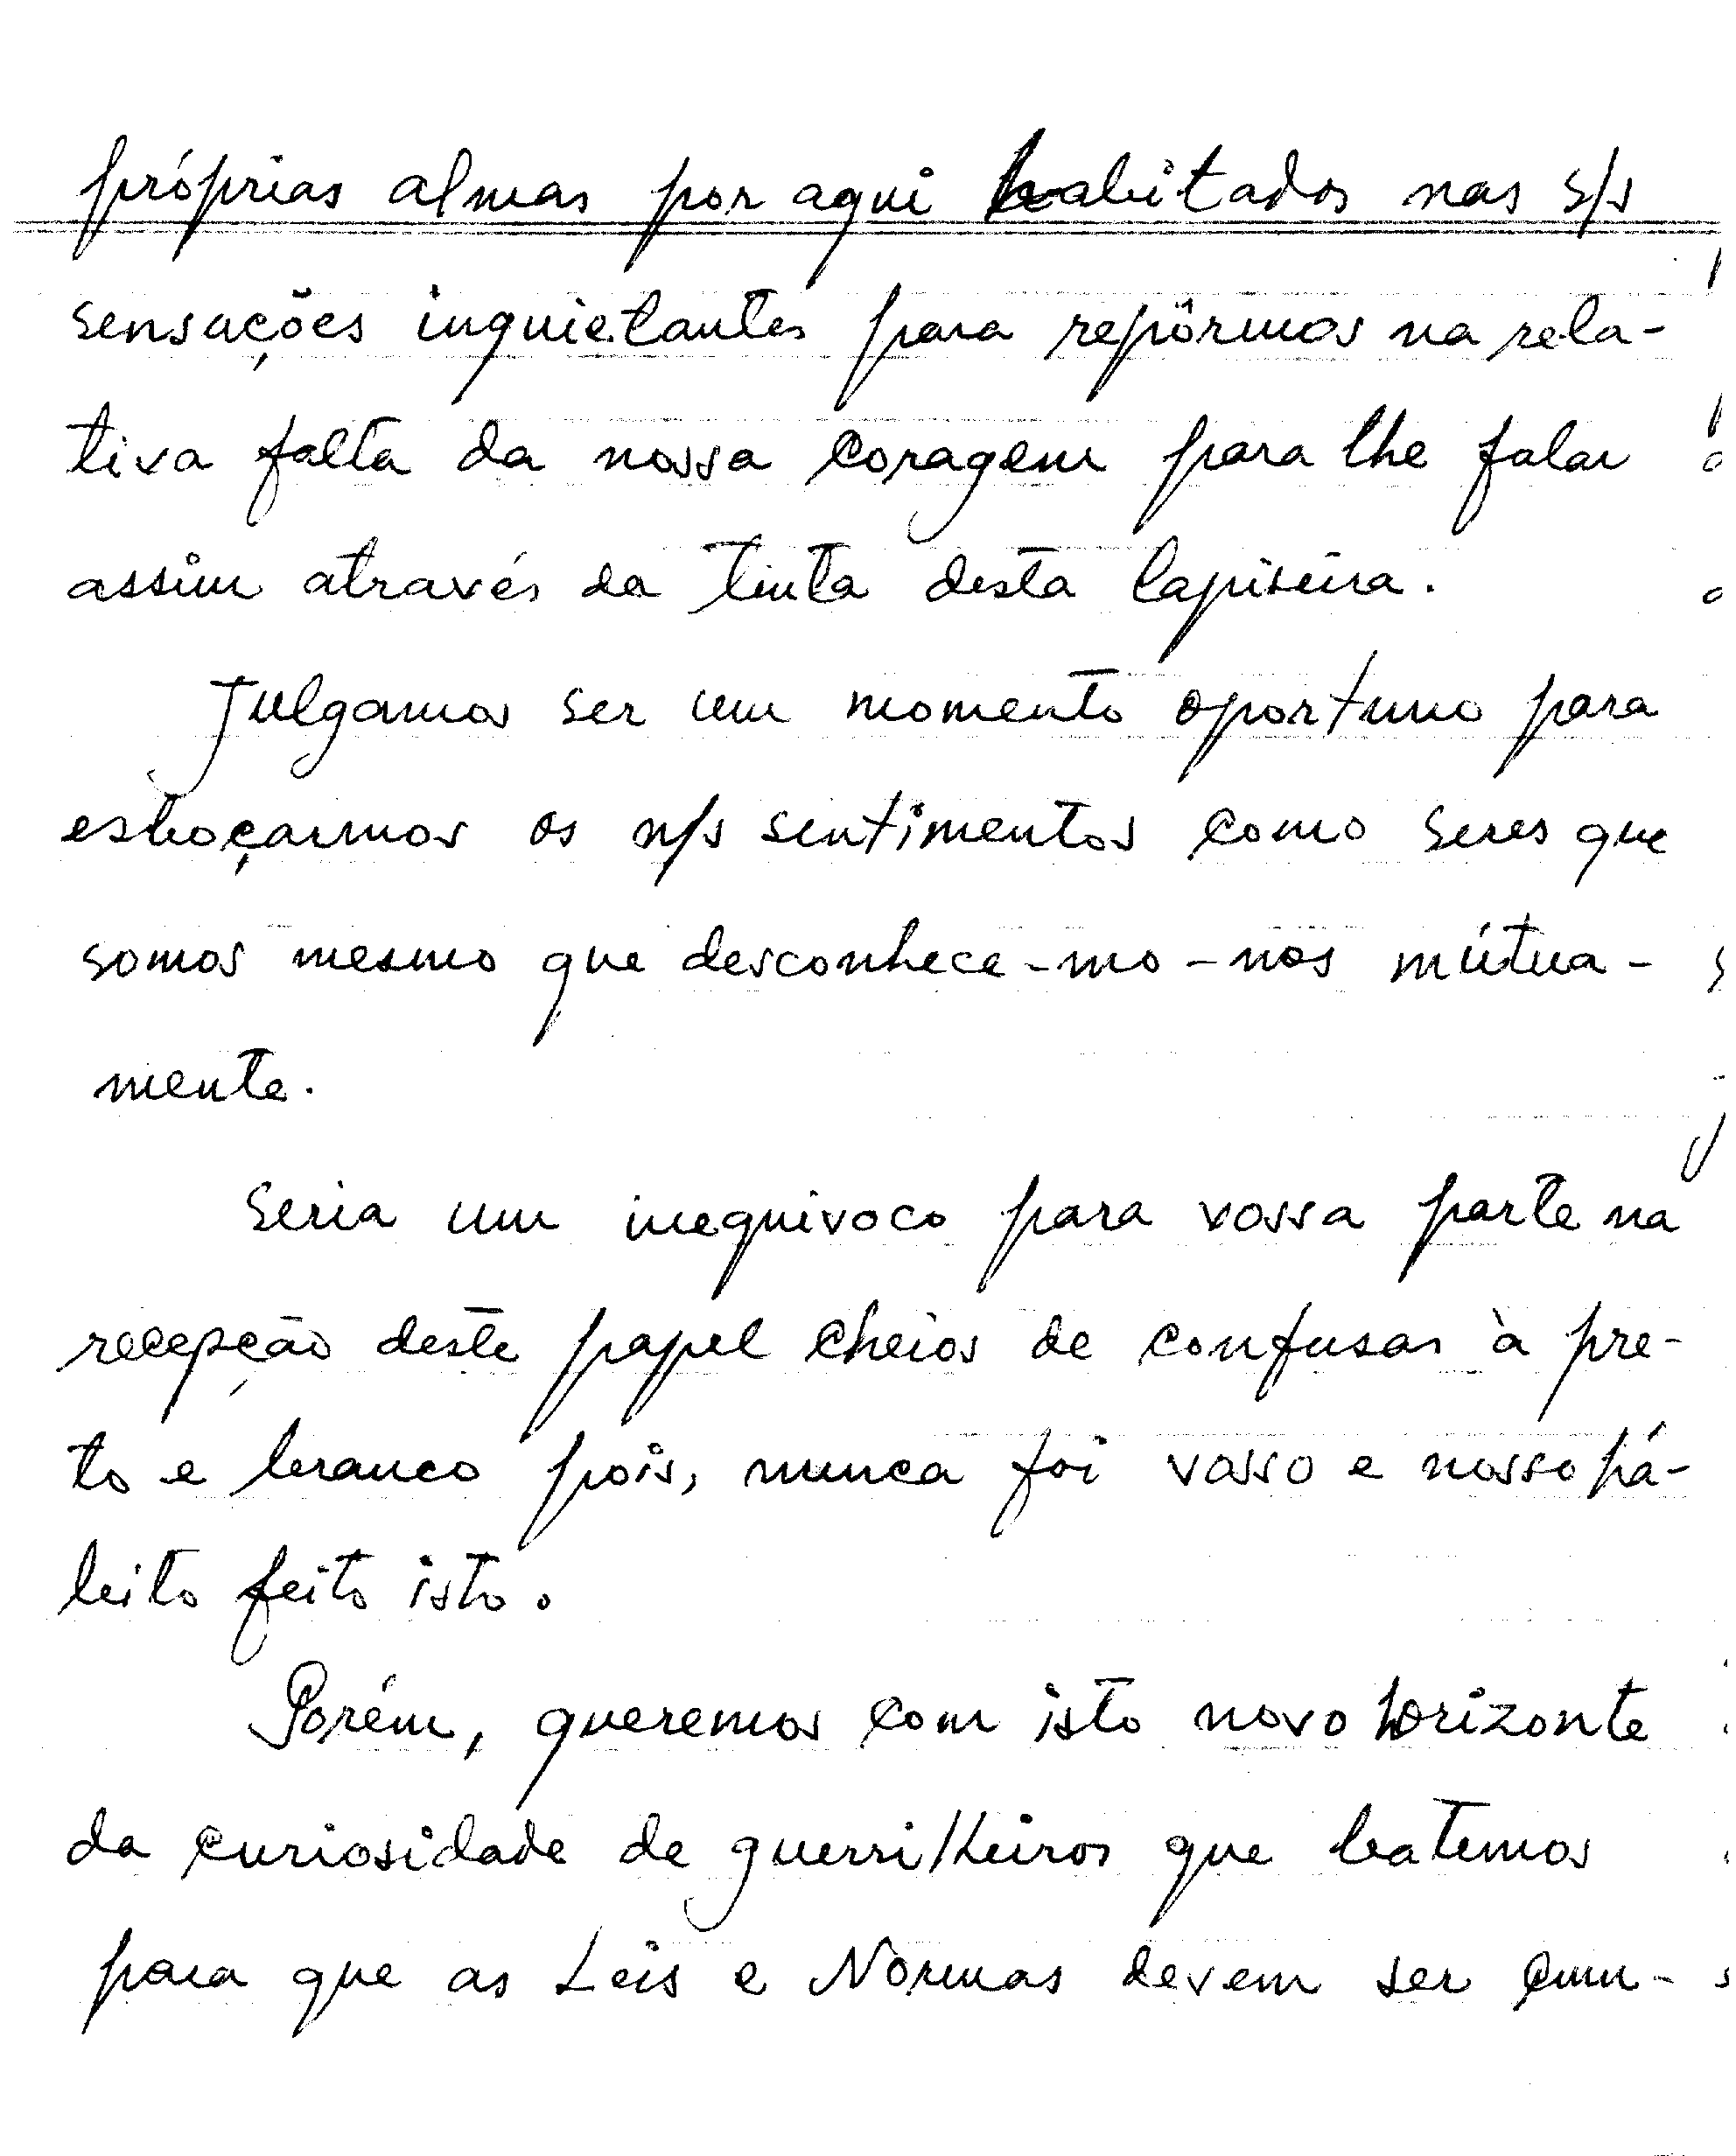 próprias almas por aqui habitados nas s/s
sensações inquietantes para repôrmos na rela-
tiva falta da nossa coragem para lhe falar
assim através da tinta desta lapiseira.
Julgamos ser um momento oportuno para
esboçarmos os n/s sentimentos como seres que
somos mesmo que desconhece-mo-nos mútua-
mente.
Seria um inequivoco para vossa parte na
recepção deste papel cheios de confusas à pre-
to e branco pois, nunca foi vosso e nosso pá-
leito feito isto.
Porém, queremos com isto novo horizonte
da curiosidade de guerrilheiros que batemos
para que as Leis e Normas devem ser cum-